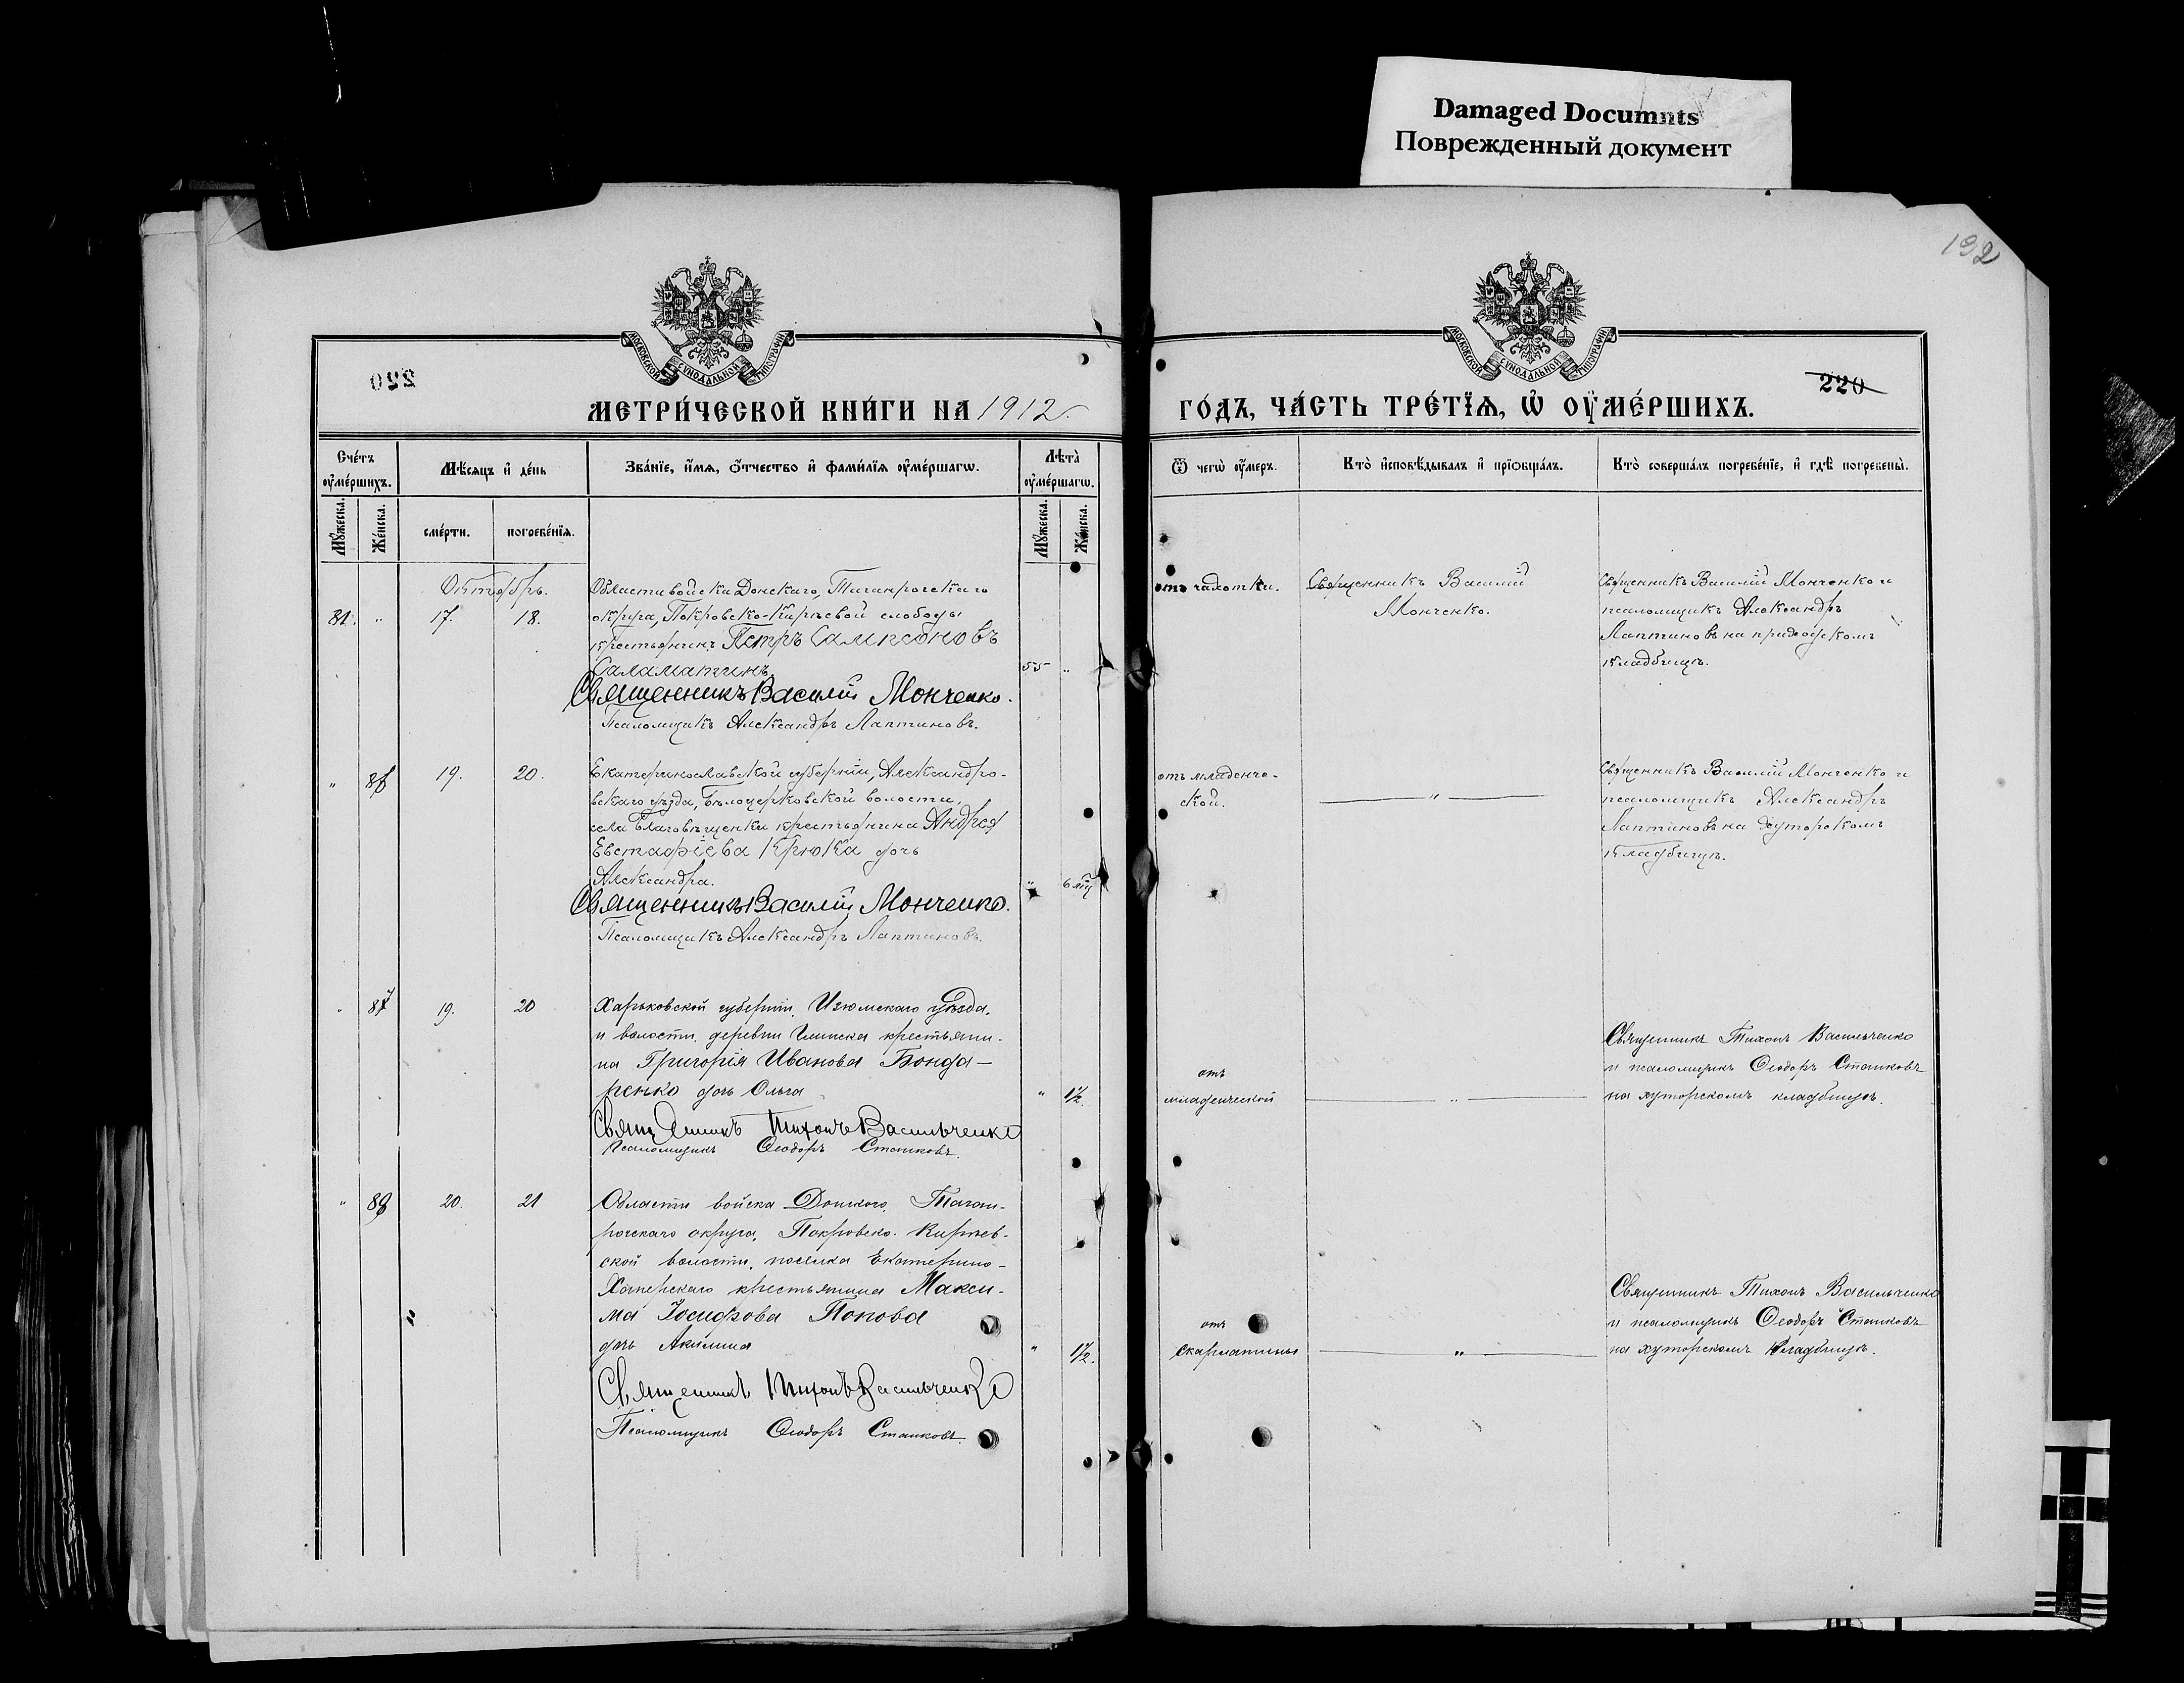 Damaged Documnts
Поврежденный документ
192
МОСКОВСКОЙ СѴНОДАЛЬНОЙ ТИПОГРАФІИ
МОСКОВСКОЙ СѴНОДАЛЬНОЙ ТИПОГРАФІИ
220
220
МЕТРИ́ЧЕСКОЙ КНИ́ГИ НА 1912 ГО́ДЪ, ЧА́СТЬ ТРЕ́ТЇѦ, Ѡ҆ ОУ҆МЕ́РШИХЪ.
Сче́тъ оу҆ме́ршихъ.
Мѣ́сѧцъ и҆ де́нь
Зва́нїе, и҆́мѧ, ѻ҆́тчество и҆ фами́лїѧ оу҆ме́ршагѡ.
Лѣ́та оу҆ме́ршагѡ.
Ѿ чегѡ̀ оу҆́меръ.
Кто̀ и҆сповѣ́дывалъ и҆ прїѻбща́лъ.
Кто̀ соверша́лъ погребе́нїе, и҆ гдѣ̀ погребены̀.
Мꙋ́жеска.
Же́нска.
сме́рти.
погребе́нїѧ.
Мꙋ́жеска.
Же́нска.
Октябрь.
81. " 17. 18.
Области войска Донскаго, Таганрогскаго
округа, Покровско-Кирѣевой слободы
крестьянинъ Петръ Сампсоновъ
Саламатинъ
55 "
Священникъ Василій Монченко.
Псаломщикъ Александръ Лаптиновъ.
отъ чахотки.
Священникъ Василій
Монченко.
Священникъ Василій Монченко и
псаломщикъ Александръ
Лаптиновъ на приходскомъ
кладбищѣ.
" 86 19. 20.
Екатеринославской губерніи, Александро-
вскаго уѣзда, Бѣлоцерковской волости,
села Благовѣщенки крестьянина Андрея
Евстафіева Крюка дочь
Александра.
" 6 мц
Священникъ Василій Монченко.
Псаломщикъ Александръ Лаптиновъ.
отъ младенче-
ской.
"
Священникъ Василій Монченко и
псаломщикъ Александръ
Лаптиновъ на хуторскомъ
кладбищѣ.
" 87 19. 20
Харьковской губерніи, Изюмскаго уѣзда,
и волости, деревни Глинска крестьяни-
на Григорія Иванова Бонда-
ренко дочь Ольга
" 1½.
Священникъ Тихонъ Васильченко
Псаломщикъ Ѳеодоръ Сташковъ.
отъ
младенческой
"
Священникъ Тихонъ Васильченко
и псаломщикъ Ѳеодоръ Сташковъ
на хуторскомъ кладбищѣ.
" 88 20. 21
Области войска Донского, Таган-
рогскаго округа, Покровско-Кирѣев-
ской волости, поселка Екатерино-
Хаперскаго крестьянина Макси-
ма Іосифова Попова
дочь Акилина
" 1½.
Священникъ Тихонъ Васильченко
Псаломщикъ Ѳеодоръ Сташковъ.
отъ
скарлатины
"
Священникъ Тихонъ Васильченко
и псаломщикъ Ѳеодоръ Сташковъ
на хуторскомъ кладбищѣ.